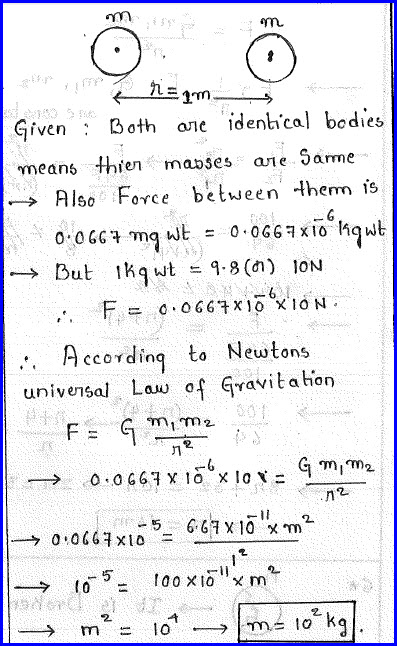 m m
r = 1m
Given : Both are identical bodies
means thier masses are same
→ Also Force between them is
0.0667 mg wt = 0.0667×10⁻⁶ kgwt
→ But 1kg wt = 9.8 (or) 10N
∴ F = 0.0667×10⁻⁶×10N.
∴ According to Newtons
universal Law of Gravitation
F = G m₁m₂/r²
→ 0.0667×10⁻⁶×10 = G m₁m₂/r²
→ 0.0667×10⁻⁵ = 6.67×10⁻¹¹×m²/1²
→ 10⁻⁵ = 100×10⁻¹¹×m²
→ m² = 10⁴ → m = 10² kg.